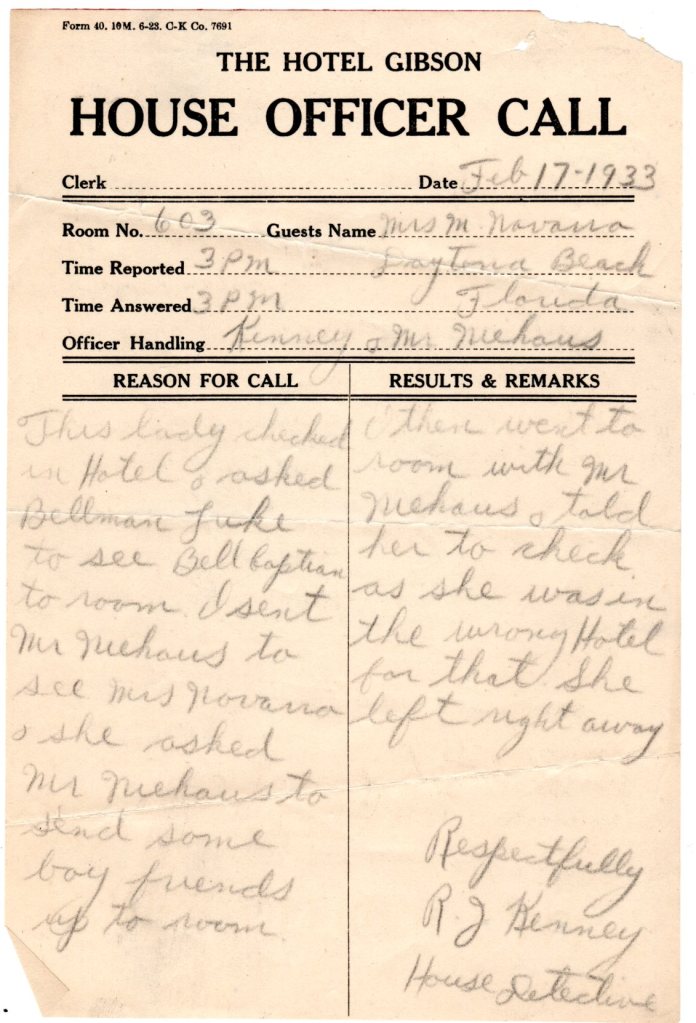 Form 40. 10M. 6-23. C-K Co. 7691
THE HOTEL GIBSON
HOUSE OFFICER CALL
Clerk Date Feb 17-1933
Room No. 603 Guests Name Mrs M. Novarro
Time Reported 3 PM Daytona Beach
Time Answered 3 PM Florida
Officer Handling Kenney & Mr Niehaus
REASON FOR CALL
This lady checked
in Hotel & asked
Bellman Luke
to see Bell Captian
to room. I sent
Mr Niehaus to
see Mrs Novarro
& she asked
Mr Niehaus to
send some
boy friends
up to room.
RESULTS & REMARKS
I then went to
room with Mr
Niehaus & told
her to check
as she was in
the wrong Hotel
for that. She
left right away
Respectfully
R. J Kenney
House Detective